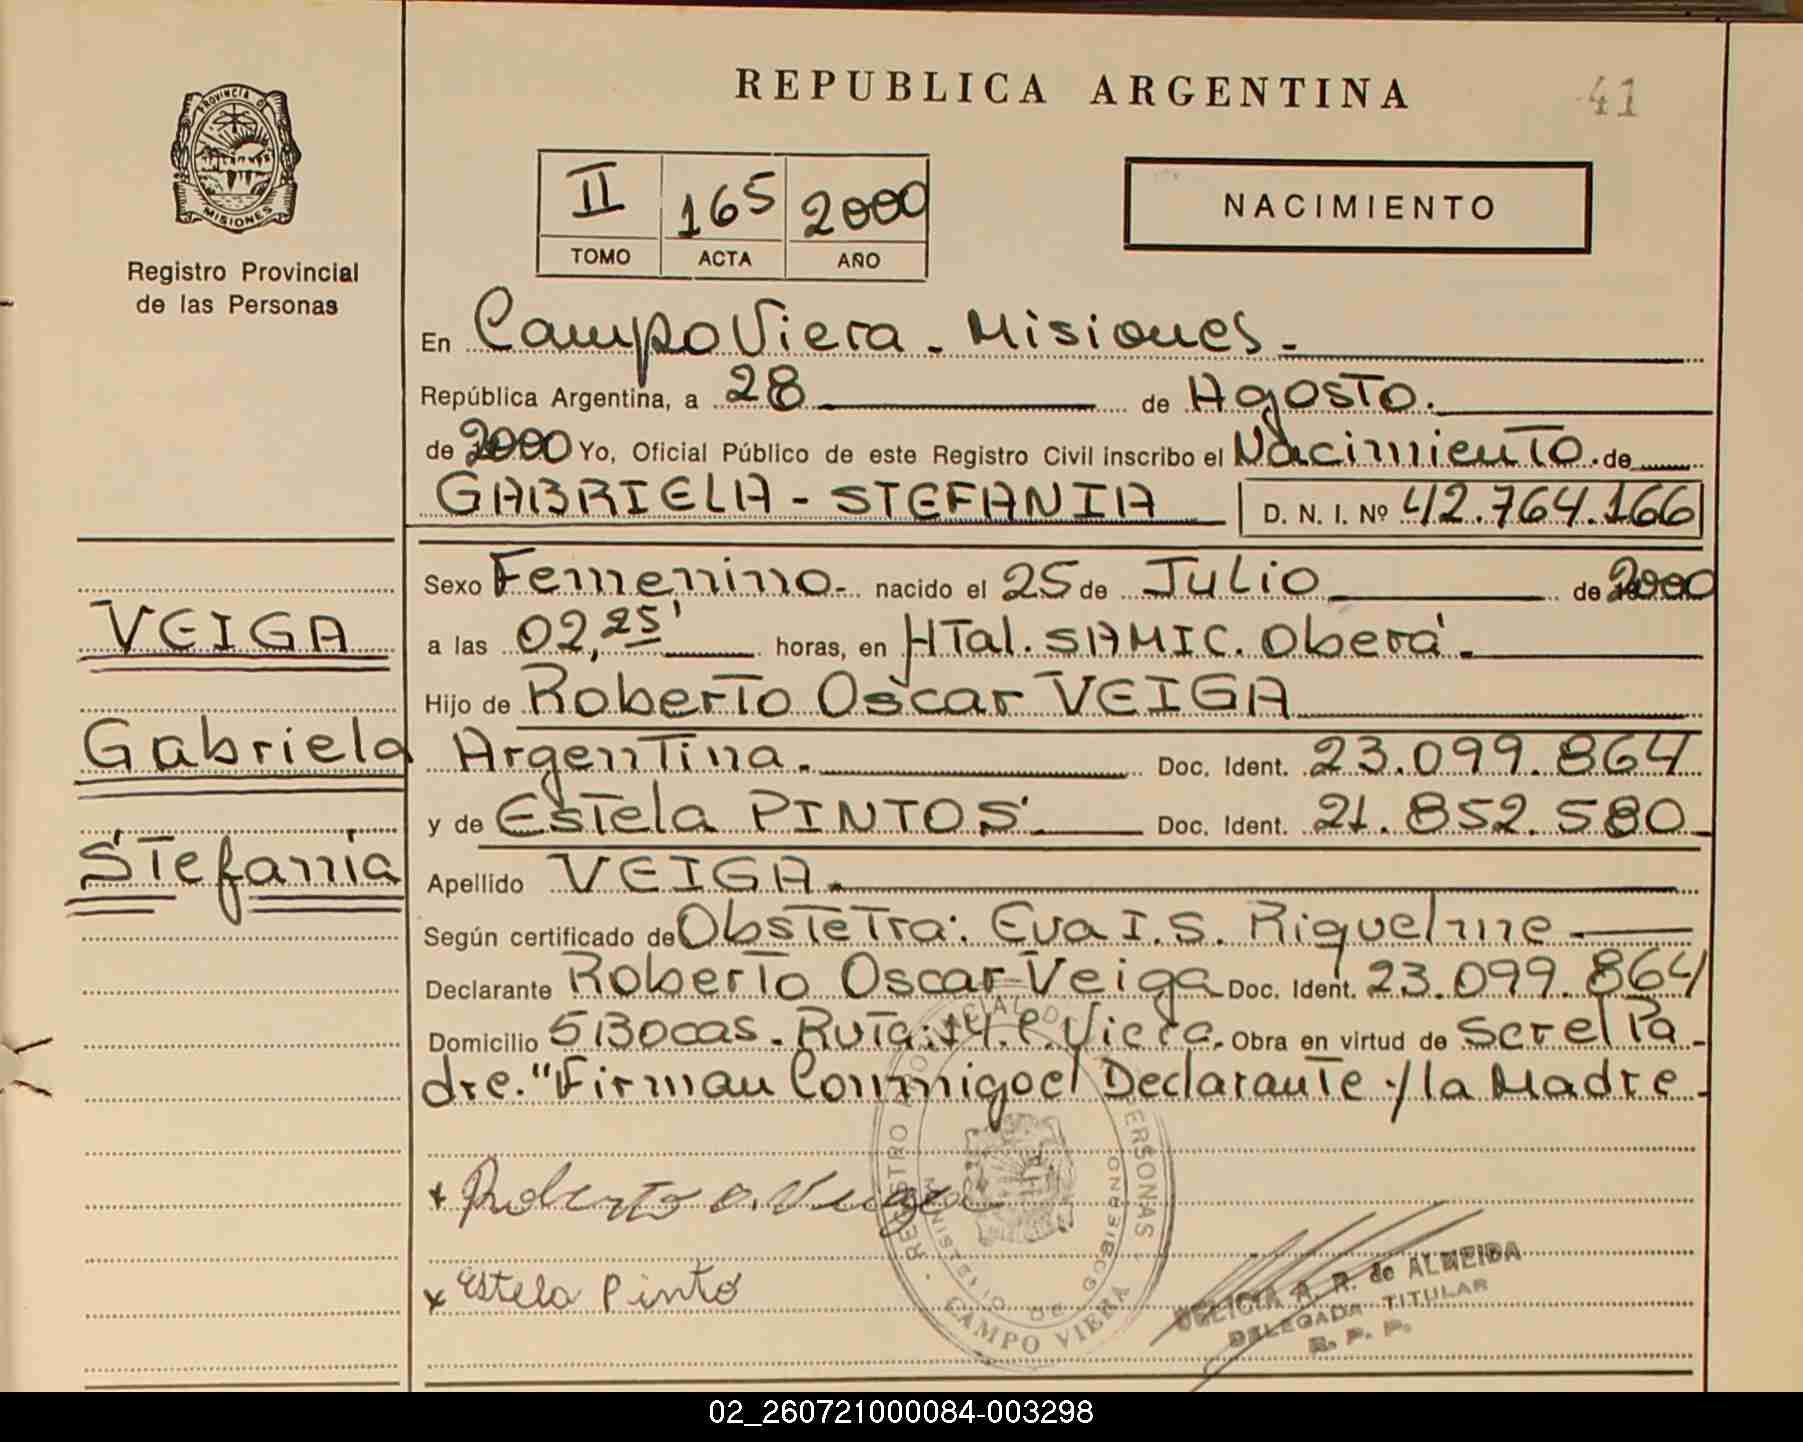 REPUBLICA ARGENTINA
41
PROVINCIA D
MISIONES
Registro Provincial
de las Personas
II 165 2000
TOMO ACTA AÑO
NACIMIENTO
En Campo Viera - Misiones -
República Argentina, a 28 de Agosto.
de 2000 Yo, Oficial Público de este Registro Civil inscribo el Nacimiento. de
GABRIELA - STEFANIA D. N. I. Nº 42.764.166
VEIGA
Gabriela
Stefania
Sexo Femenino. nacido el 25 de Julio de 2000
a las 02,25' horas, en HTal. SAMIC. Oberá.
Hijo de Roberto Oscar VEIGA
Argentina. Doc. Ident. 23.099.864
y de Estela PINTOS Doc. Ident. 21.852.580
Apellido VEIGA.
Según certificado de Obstetra: Eva I. S. Riquelme
Declarante Roberto Oscar Veiga Doc. Ident. 23.099.864
Domicilio 5 Bocas. Ruta: 14. C. Viera. Obra en virtud de Ser el Pa
dre. "Firman Conmigo el Declarante y/la Madre.
x Roberto O. Veiga
x Estela Pinto
REGISTRO PROVINCIAL DE PERSONAS
MINISTERIO DE GOBIERNO
CAMPO VIERA
A. R. de ALMEIDA
DELEGADA TITULAR
R. P. P.
02_260721000084-003298